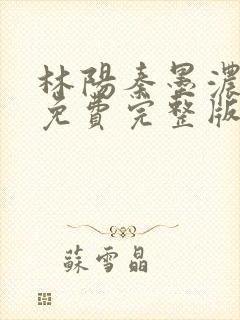 林陽秦墨濃
免費完整版
蘇雪晶